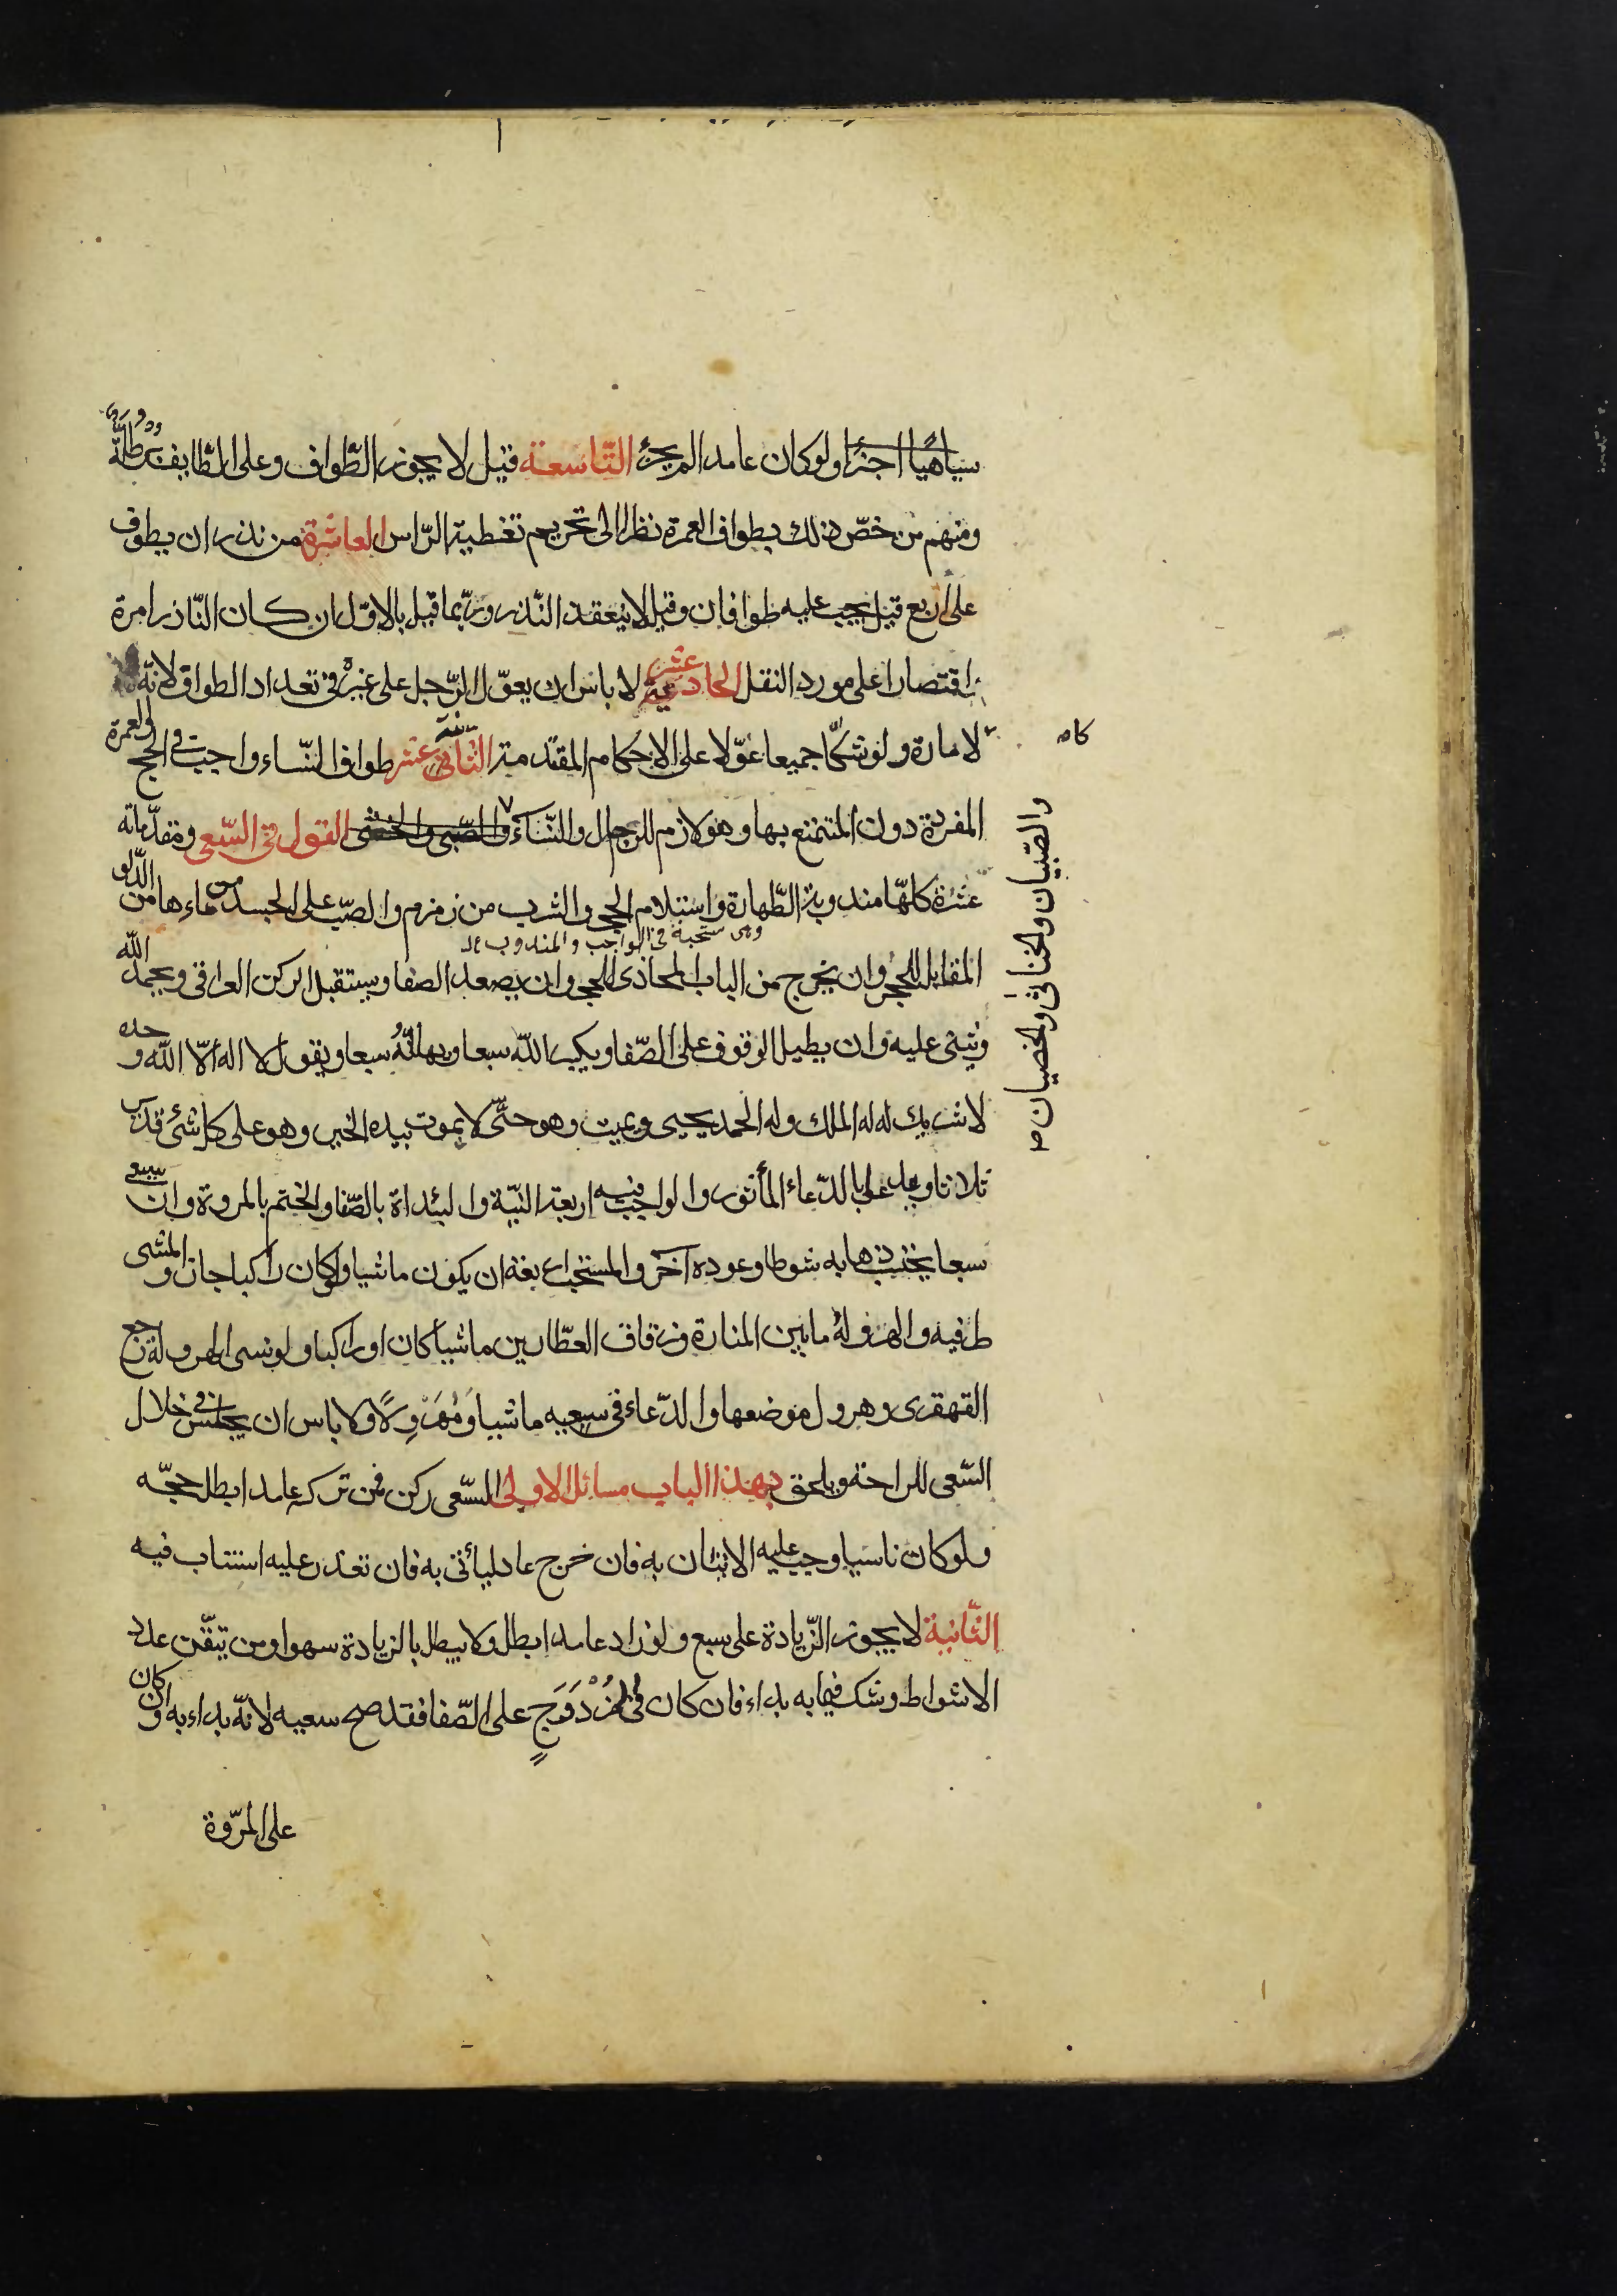 ساهيًا اجزأ ولو كان عامدا لم يجزء التّاسعة قيل لا يجوز الطّواف وعلى الطّايف برطلّة
ومنهم من خصّ ذلك بطواف العمرة نظرا الى تحريم تغطية الرّاس العاشرة من نذر ان يطوف
على اربع قيل يجب عليه طوافان وقيل لا ينعقد النّذر وربّما قيل بالاوّل ان كان النّاذر امرة
اقتصارا على مورد النقل الحادية عشر لا باس ان يعوّل الرّجل على غيره فى تعداد الطواف لانّه
كالامارة ولو شكّا جميعا عوّلا على الاحكام المقدّمة الثّانية عشر طواف النّساء واجب فى الحج والعمرة
المفردة دون المتمتع بها وهو لازم للرجال والنّساء والصّبى والخنثى القول فى السّعى ومقدّماته
عشرة كلهّا مندوبة الطّهارة واستلام الحجر والشرب من زمزم والصّب على الجسد من ماءها من الدّلو
وهى مستحبة فى الواجب والمندوب
المقابل للحجر وان يخرج من الباب المحاذى للحجر وان يصعد الصفا ويستقبل الركن العراقى ويحمد الله
ويُثنى عليه وان يطيل الوقوف على الصّفا ويكبر اللّه سبعا ويهلّلهُ سبعا ويقول لا اله الّا اللّه وحده
لا شريك له له الملك وله الحمد يحيى ويميت وهو حىّ لا يموت بيده الخير وهو على كل شئ قدير
ثلاثا ويدعوا بالدّعاء المأثور والواجب فيه اربعة النيّة والبئداة بالصّفا والختم بالمروة وان يسعى
سبعا يحتسب ذهابه شوطا وعوده آخر والمستحب اربعة ان يكون ماشيا ولو كان راكبا جاز والمشى
طرفيه والهرولهُ ما بين المنارة وزقاق العطّارين ماشيا كان او راكبا ولو نسى الهرولة رجع
القهقرى وهرول موضعها والدّعاء فى سعيه ماشيا ومُهَرْوِلًا ولا باس ان يجلس فى خلال
السّعى للراحة ويلحق بهذا الباب مسائل الاولى السّعى ركن فمن تركه عامدا بطل حجّه
ولو كان ناسيا وجب عليه الاتيان به فان خرج عاد ليأتى به فان تعذر عليه استناب فيه
الثّانية لا يجوز الزّيادة على سبع ولو زاد عامدا بطل ولا يبطل بالزيادة سهوا ومن تيقّن عدد
الاشواط وشك فيما به بداء فان كان فى المُزْدَوَجِ على الصّفا فقد صح سعيه لانّه بداء به وان كان
على المرّوة
والصّبيان والخناثى والخصيان صح